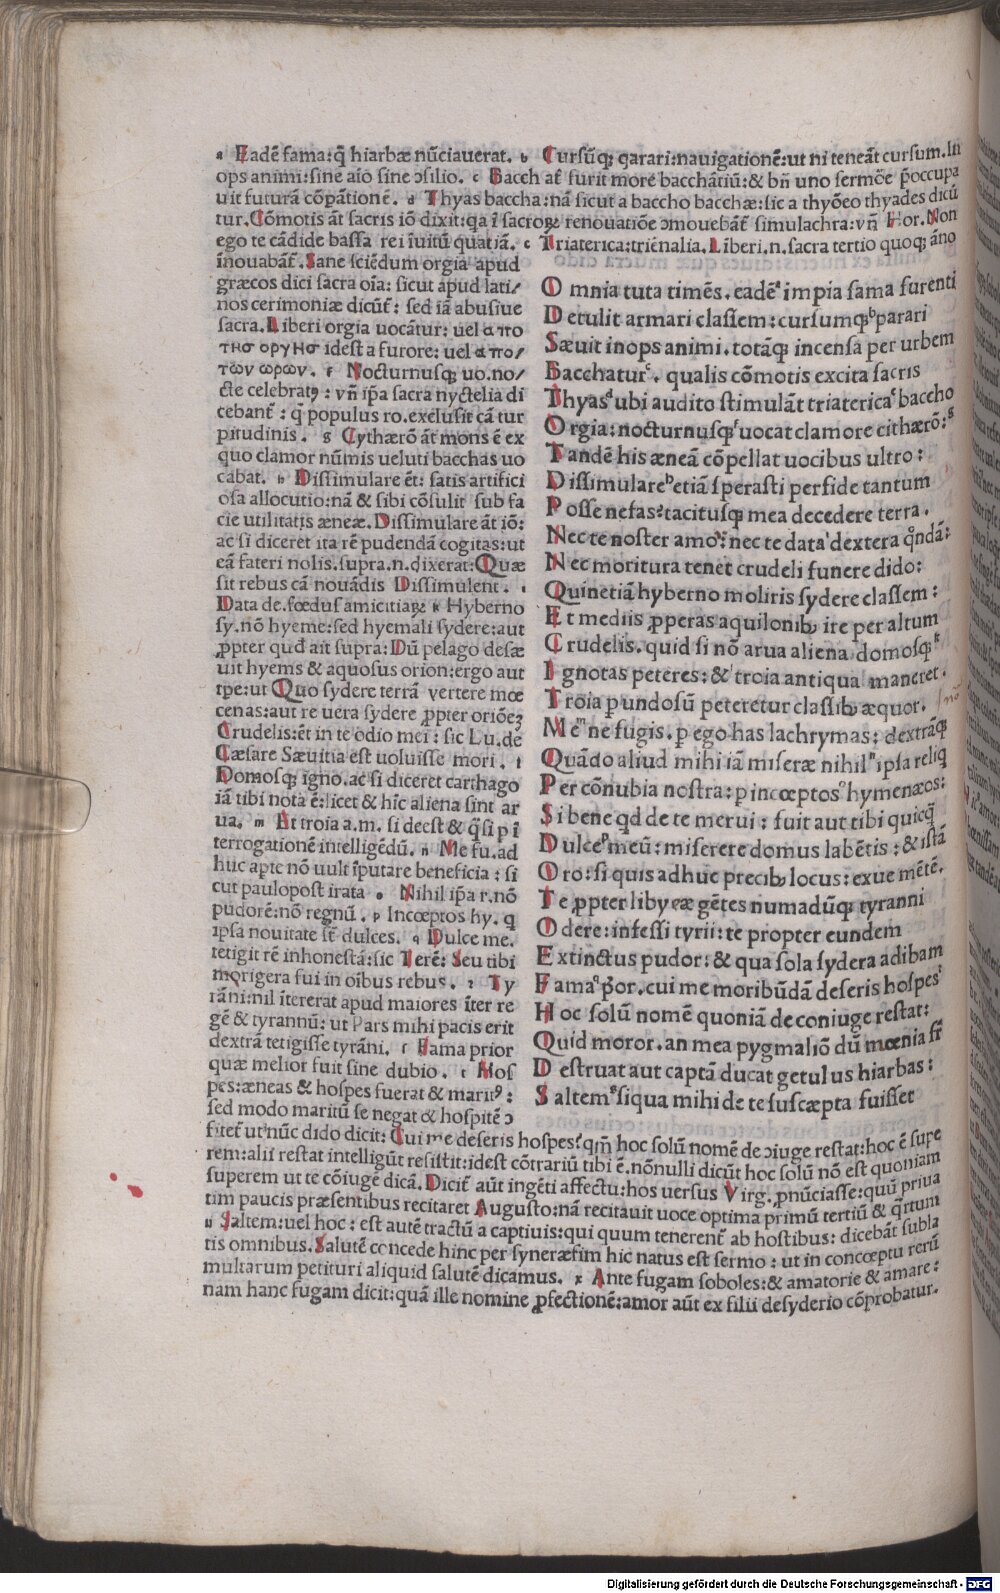 a Eadē fama:q̄ hiarbæ nūciauerat. b Cursūq; qarari:nauigationē:ut ni teneāt cursum. In
ops animi:sine aīo sine ɔsilio. c Bacchat̄ furit more bacchātiū:& bn̄ uno sermōe p̄occupa
uit futurā cōpationē. d Thyas baccha:nā sicut a baccho bacchæ:sic a thyōeo thyades dicū
tur. Cōmotis āt sacris iō dixit:qa ī sacroꝝ renouatiōe ɔmouebāt̄ simulachra:vn̄ Hor. Non
ego te cādide bassa rei īuitū quatiā. e Triaterica:triēnalia. Liberi.n.sacra tertio quoq; āno
īnouabāt̄. Sane sciēdum orgia apud
græcos dici sacra oīa: sicut apud lati/
nos cerimoniæ dicūt̄: sed iā abusiue
sacra. Liberi orgia uocātur: uel απο
τησ οργησ idest a furore: uel απο/
των ορων. f Nocturnusq; uo.no/
cte celebratꝰ: vn̄ ip̄a sacra nyctelia di
cebant̄: q̄ populus ro.exclusit cā tur
pitudinis. g Cythærō āt mons ē ex
quo clamor nūmis ueluti bacchas uo
cabat. h Dissimulare ēt: satis artifici
osa allocutio:nā & sibi cōsulit sub fa
cie utilitatis æneæ. Dissimulare āt iō:
ac si diceret ita rē pudendā cogitas:ut
eā fateri nolis.supra.n.dixerat:Quæ
sit rebus cā nouādis Dissimulent. i
Data de.fœdus amicitiaꝝ k Hyberno
sy.nō hyeme:sed hyemali sydere:aut
ꝓpter qud̄ ait supra: Dū pelago desæ
uit hyems & aquosus orion:ergo aut
tpe:ut Quo sydere terrā vertere mœ
cenas:aut re uera sydere ꝓpter oriōeꝫ
Crudelis:ēt in te odio mei: sic Lu.dē
Cæsare Sæuitia est uoluisse mori. l
Domosq; igno.ac si diceret carthago
iā tibi nota ē:licet & hīc aliena sint ar
ua. m At troia a.m. si deest & q̄si p ī
terrogationē intelligēdū. n Me fu.ad
huc apte nō uult īputare beneficia: si
cut paulopost irata o Nihil ip̄a r.nō
pudorē:nō regnū. p Incœptos hy. q
ipsa nouitate st̄ dulces. q Dulce me.
tetigit rē inhonestā:sic Terē: Seu tibi
morigera fui in oībus rebus. r Ty
rāni:nil īterērat apud maiores īter re
gē & tyrannū: ut Pars mihi pacis erit
dextrā tetigisse tyrāni. s Fama prior
quæ melior fuit sine dubio. t Hos
pes:æneas & hospes fuerat & maritꝰ:
sed modo maritū se negat & hospitē ɔ
O mnia tuta timēs. eadēᵃ impia fama furenti
D etulit armari classem: cursumq;ᵇ parari
S æuit inops animi. totāq; incensa per urbem
B acchaturᶜ. qualis cōmotis excita sacris
T hyasᵈ ubi audito stimulāt triatericaᵉ baccho
O rgia: nocturnusq;ᶠ uocat clamore cithærō:ᵍ
T andē his æneā cōpellat uocibus ultro:
D issimulareʰ etiā sperasti perfide tantum
P osse nefas? tacitusq; mea decedere terra.
N ec te noster amor: nec te dataⁱ dextera q̊ndā:
N ec moritura tenet crudeli funere dido:
Q uinetiā hyberno moliris sydere classem:
E t mediis ꝓperas aquilonib; ire per altum
C rudelis. quid si nō arua aliena domosq;ᵏ
I gnotas peteres: &ˡ troia antiqua maneret.
T roia p undosū peteretur classib; æquor.
M eⁿ ne fugis. p ego has lachrymas: dextrāq;
Q uādo aliud mihi iā miseræ nihil ipsa reliq
P er cōnubia nostra: p incœptos hymenæos:
S i bene qd de te merui: fuit aut tibi quicq̄
D ulceᵖ meū: miserere domus labētis: & istā
O ro: si quis adhuc precib; locus: exue mētē.
T e ꝓpter libycæ gētes numadūq; tyranni
O dere: infessi tyrii: te propter eundem
E xtinctus pudor: & qua sola sydera adibam
F ama p̄or. cui me moribūdā deseris hospesᵗ
H oc solū nomē quoniā de coniuge restat:
Q uid moror. an mea pygmaliō dū mœnia fr̄
D estruat aut captā ducat getulus hiarbas:
S altemᵘ siqua mihi de te suscæpta fuisset
fitet̄ ut nūc dido dicit: Cui me deseris hospes? qm̄ hoc solū nomē de ɔiuge restat: hoc ē supe
rem:alii restat intelligūt resistit:idest cōtrariū tibi ē.nōnulli dicūt hoc solū nō est quoniam
superem ut te cōiugē dicā. Dicit̄ aūt ingēti affectu:hos uersus Virg. ꝓnūciasse:quū priua
tim paucis præsentibus recitaret Augusto:nā recitauit uoce optima primū tertiū & q̄rtum
u Saltem:uel hoc: est autē tractū a captiuis:qui quum tenerent̄ ab hostibus: dicebāt subla
tis omnibus. Salutē concede hinc per synerǣsim hic natus est sermo: ut in concœptu rerū
multarum petituri aliquid salutē dicamus. x Ante fugam soboles:& amatorie & amare:
nam hanc fugam dicit:quā ille nomine ꝓfectionē:amor aūt ex filii desyderio cōprobatur.
nō
Digitalisierung gefördert durch die Deutsche Forschungsgemeinschaft - DFG